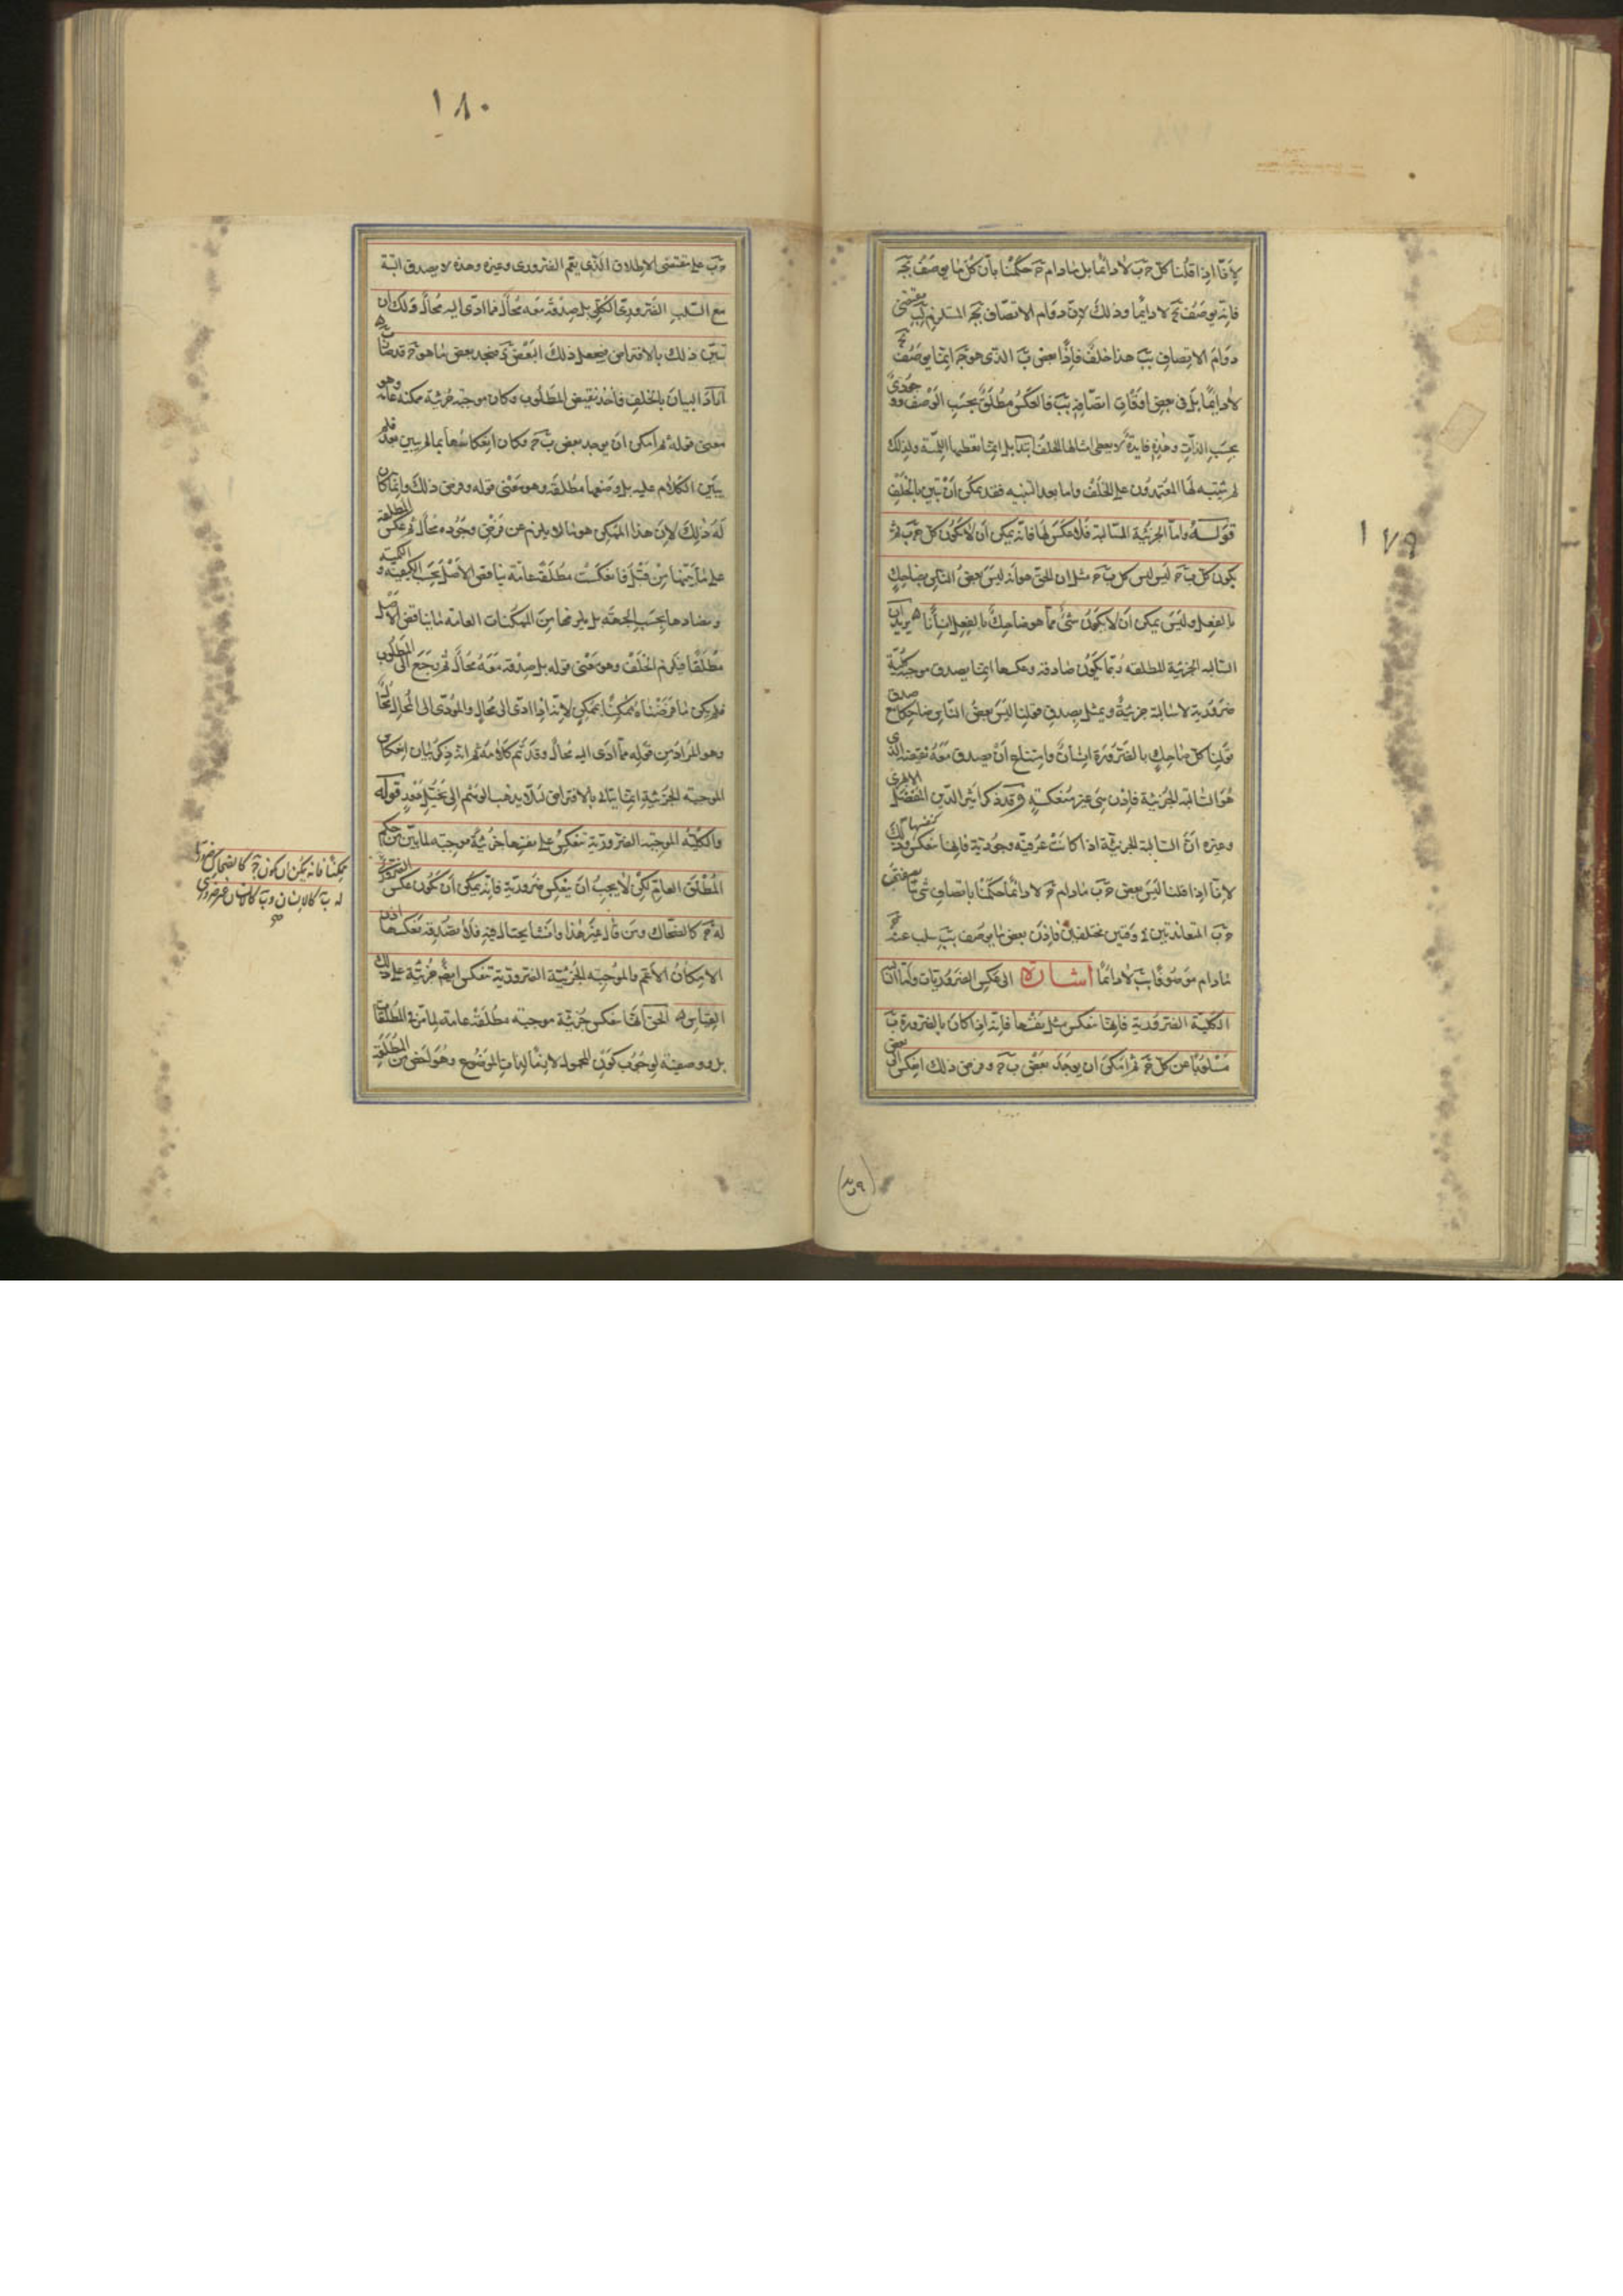 ١٧٩
لانا اذا قلنا كل حَ بَ لا دائما بل مادام حَ حكمنا بان كل ما يوصف بجَ
فانه يوصف بَ لا دايما وذلك لان دوام الاتصاف بجَ المستلزم لبَ يقتضى
دوام الاتصاف ببَ هذا خلف فاذا بعض بَ الذى هو جَ انما يوصف بجَ
لا دايما بل فى بعض اوقات اتصافه ببَ فالعكس مطلق بحسب الوصف وجودى
بحسب الذات وهذه فايدة لا يعطى امثالها الخلف ابتدا بل انما تعطيها اللمية ولذلك
لم يتنبه لها المعتمدون على الخلف واما بعد التنبيه فقد يمكن ان تبين بالخلف
قوله واما الجزئية السالبة فلا عكس لها فانه يمكن ان لا يكون كل حَ بَ ثم
يكون كل بَ حَ ليس ليس كل بَ حَ مثل ان الحق هو انه ليس بعض الناس بضاحك
بالفعل وليس يمكن ان لا يكون شئ مما هو ضاحك بالفعل انسانا ه يريد ان
السالبه الجزئية المطلقه ربما يكون صادقه وعكسها انما يصدق موجبة كلية
ضرورية لا سالبة جزئية ويمثل بصدق قولنا ليس بعض الناس ضاحكا مع صدق
قولنا كل ضاحك بالضرورة انسان وامتناع ان يصدق معه نقيضه الذى
هو السالبة الجزئية فاذن هى غير منعكسة وقد ذكر اثير الدين المفضل الابهرى
وغيره ان السالبة الجزئية اذا كانت عرفيه وجودية فانها تنعكس كنفسها وذلك
لانا اذا قلنا ليس بعض حَ بَ مادام حَ لا دائما حكمنا باتصاف شئ بصفتى
حَ بَ المتعاندتين فى وقتين مختلفين فاذن بعض ما يوصف ببَ يسلب عنه حَ
مادام موصوفا ببَ لا دائما اشارة الى عكس الضروريات واما السالبة
الكلية الضرورية فانها تنعكس مثل نفسها فانه اذا كان بالضرورة بَ
مسلوبا عن كل حَ ثم امكن ان يوجد بعض بَ حَ وفرض ذلك انعكس الى بعض
١٨٠
حَ بَ على مقتضى الاطلاق الذى يعم الضرورى وغيره وهذه لا يصدق البتة
مع السلب الضرورى الكلى بل صدقه معه محال فما ادى اليه محال ولك ان
تبين ذلك بالافتراض فيجعل ذلك البعض دَ فنجد بعض ما هو حَ قد صار بَ ه
اراد البيان بالخلف فاخذ نقيض المطلوب وكان موجبة جزئية ممكنة عامة وهو
معنى قوله ثم امكن ان يوجد بعض بَ حَ وكان انعكاسها مما لم يبين بعد فلم
يبن الكلام عليه بل وضعها مطلقه وهو معنى قوله وفرض ذلك وانما كان
له ذلك لان هذا الممكن هو ما لا يلزم عن فرض وجوده محال ثم عكس المطلقة
على ما بينها من قبل فانعكست مطلقة عامة يناقض الاصل بحسب الكيفية والكمية
ويضادها بحسب الجهة بل يلزمها من الممكنات العامة ما يناقض الاصل
مطلقا فيلزم الخلف وهو معنى قوله بل صدقه معه محال ثم يرجع الى المطلوب
فلم يكن ما فرضناه ممكنا بممكن لانه اذا ادى الى محال والمؤدى الى المحال محال
وهو المراد من قوله مما ادى اليه محال وقد تم كلامه ثم انه ذكر بيان انعكاس
الموجبه الجزئية ايضا بيانك بالافتراض لئلا يذهب الوهم الى تخيل
والكلية الموجبه الضرورية تنعكس على نفسها جزئية موجبة لما بين من حكم
المطلق العام لكن لا يجب ان ينعكس ضرورية فانه يمكن ان يكون عكس الضرورى
ممكنا فانه يمكن ان يكون حَ كالضحاك ضروريا
له بَ كالانسان وبَ كالانسان غير ضرورى
له حَ كالضحاك ومن قال غير هذا وانشا يحتال فيه فلا تصدقه فعكسها اذن
الامكان الاعم والموجبه الجزئية الضرورية تنعكس ايضا جزئية على ذلك
القياس ه الحق انها تنعكس جزئية موجبة مطلقة عامة لما مر فى المطلقات
بل ووصفية لوجوب كون المحمول لازما لذات الموضوع وهو اخص من المطلقة